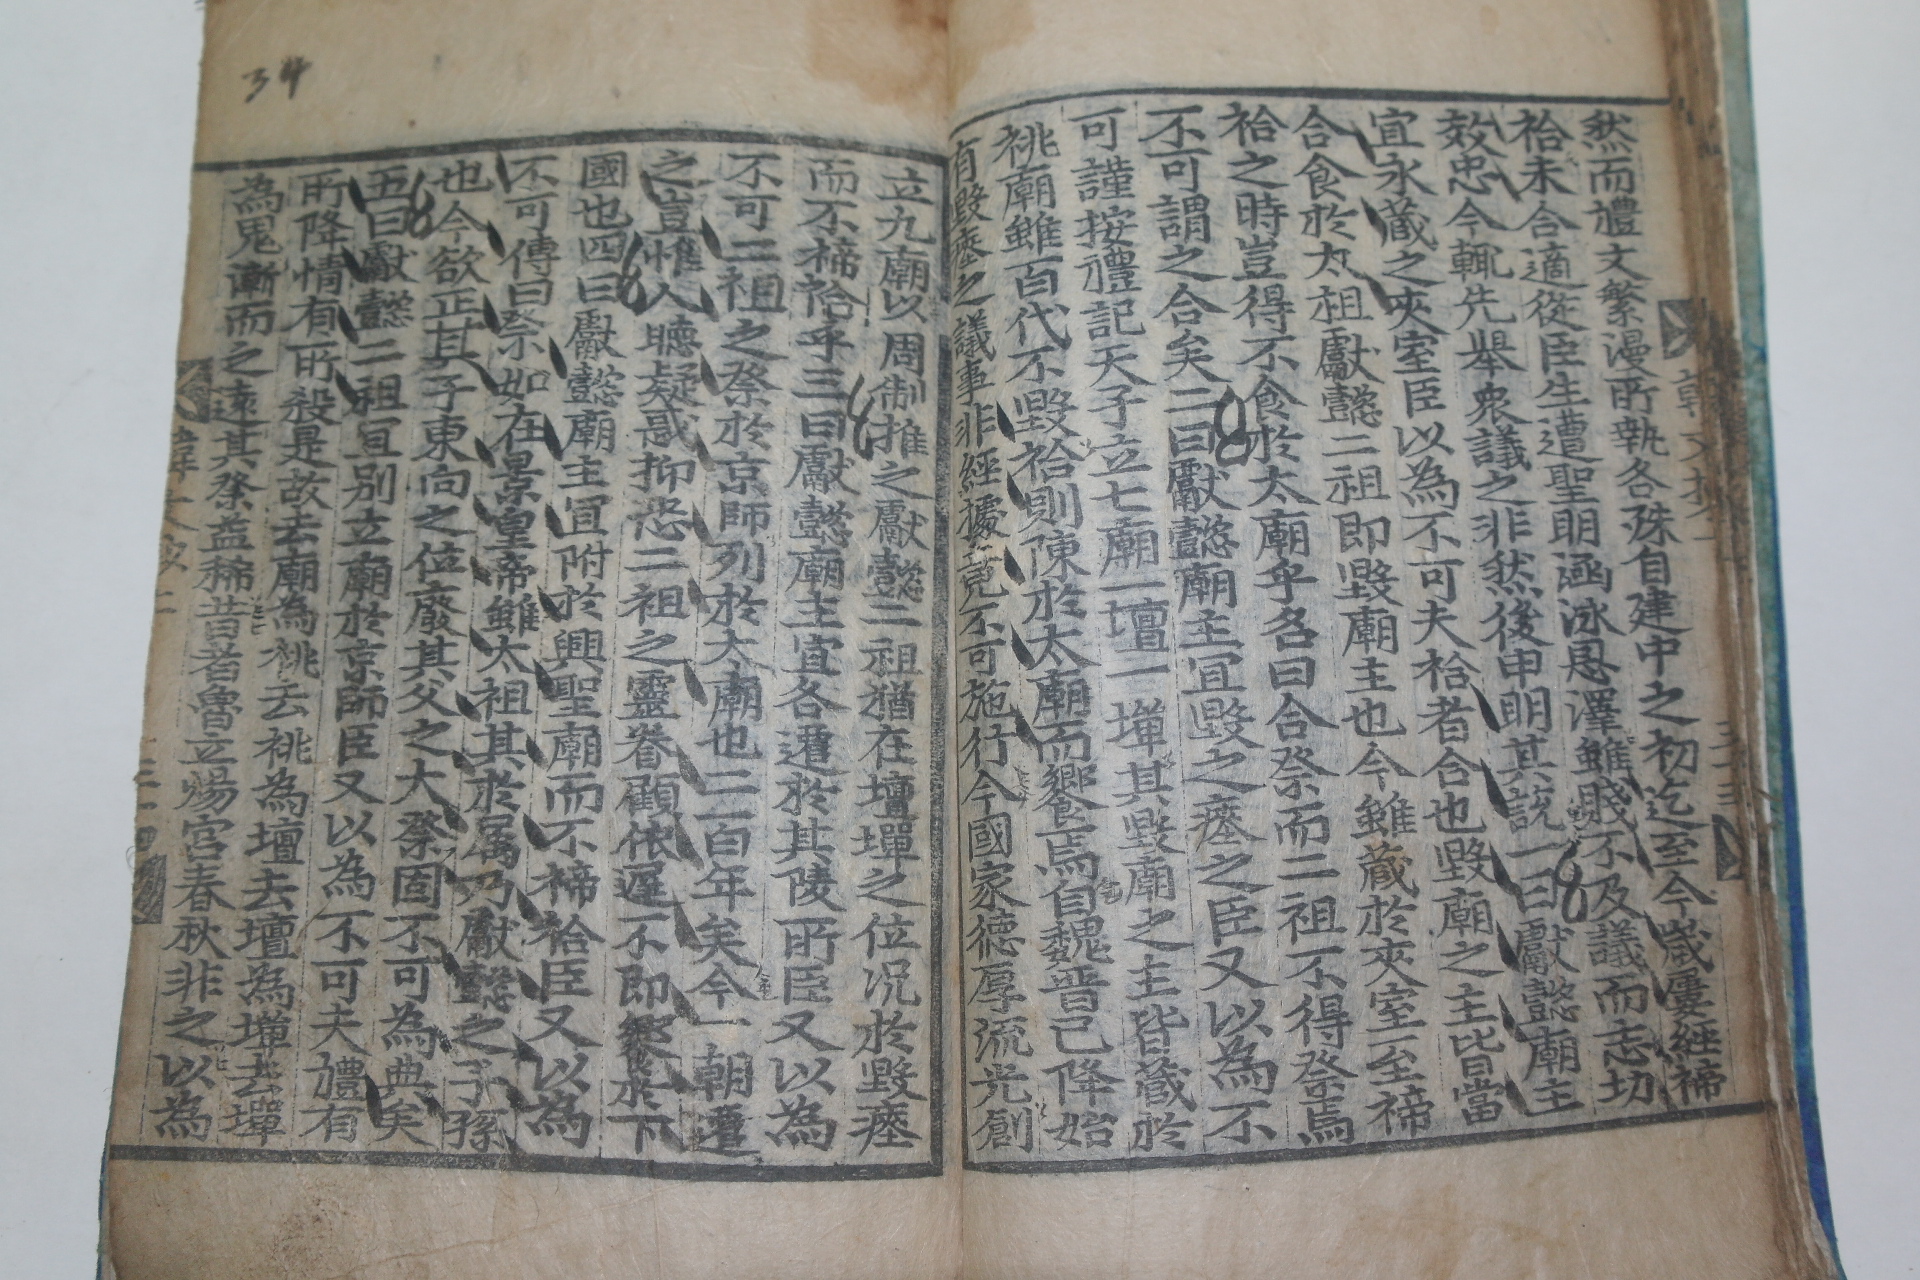 然而禮文繁漫所執各殊自建中之初迄至今歲屢經禘
祫未合適從臣生遭聖明涵泳恩澤雖賤不及議而志切
效忠今輒先舉衆議之非然後申明其說一曰獻懿廟主
宜永藏之夾室臣以為不可夫祫者合也毀廟之主皆當
合食於太祖獻懿二祖即毀廟主也今雖藏於夾室至禘
祫之時豈得不食於太廟乎名曰合祭而二祖不得祭焉
不可謂之合矣二曰獻懿廟主宜毀之瘞之臣又以為不
可謹按禮記天子立七廟一壇一墠其毀廟之主皆藏於
祧廟雖百代不毀祫則陳於太廟而饗焉自魏晉已降始
有毀瘞之議事非經據竟不可施行今國家德厚流光創
立九廟以周制推之獻懿二祖猶在壇墠之位况於毀瘞
而不禘祫乎三曰獻懿廟主宜各遷於其陵所臣又以為
不可二祖之祭於京師列於太廟也二百年矣今一朝遷
之豈惟人聽疑惑抑恐二祖之靈眷顧依遲不即饗於下
國也四曰獻懿廟主宜附於興聖廟而不禘祫臣又以為
不可傳曰祭如在景皇帝雖太祖其於屬乃獻懿之子孫
也今欲正其子東向之位廢其父之大祭固不可為典矣
五曰獻懿二祖宜別立廟於京師臣又以為不可夫禮有
所降情有所殺是故去廟為祧去祧為壇去壇為墠去墠
為鬼漸而之遠其祭益稀昔者魯立煬宮春秋非之以為
34